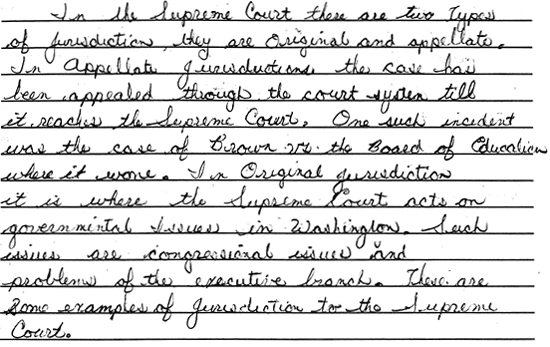 In the Supreme Court there are two Types
of jurisdiction, they are Original and appellate.
In Appellate jurisductions, the case has
been appealed through the court system till
it reaches the Supreme Court. One such incident
was the case of Brown vs. the Board of Education
where it wone. In Original jurisdiction
it is where the Supreme Court acts on
governmental Issues in Washington. Such
issues are congressional issues and
problems of the executive branch. These are
some examples of jurisdiction for the Supreme
Court.